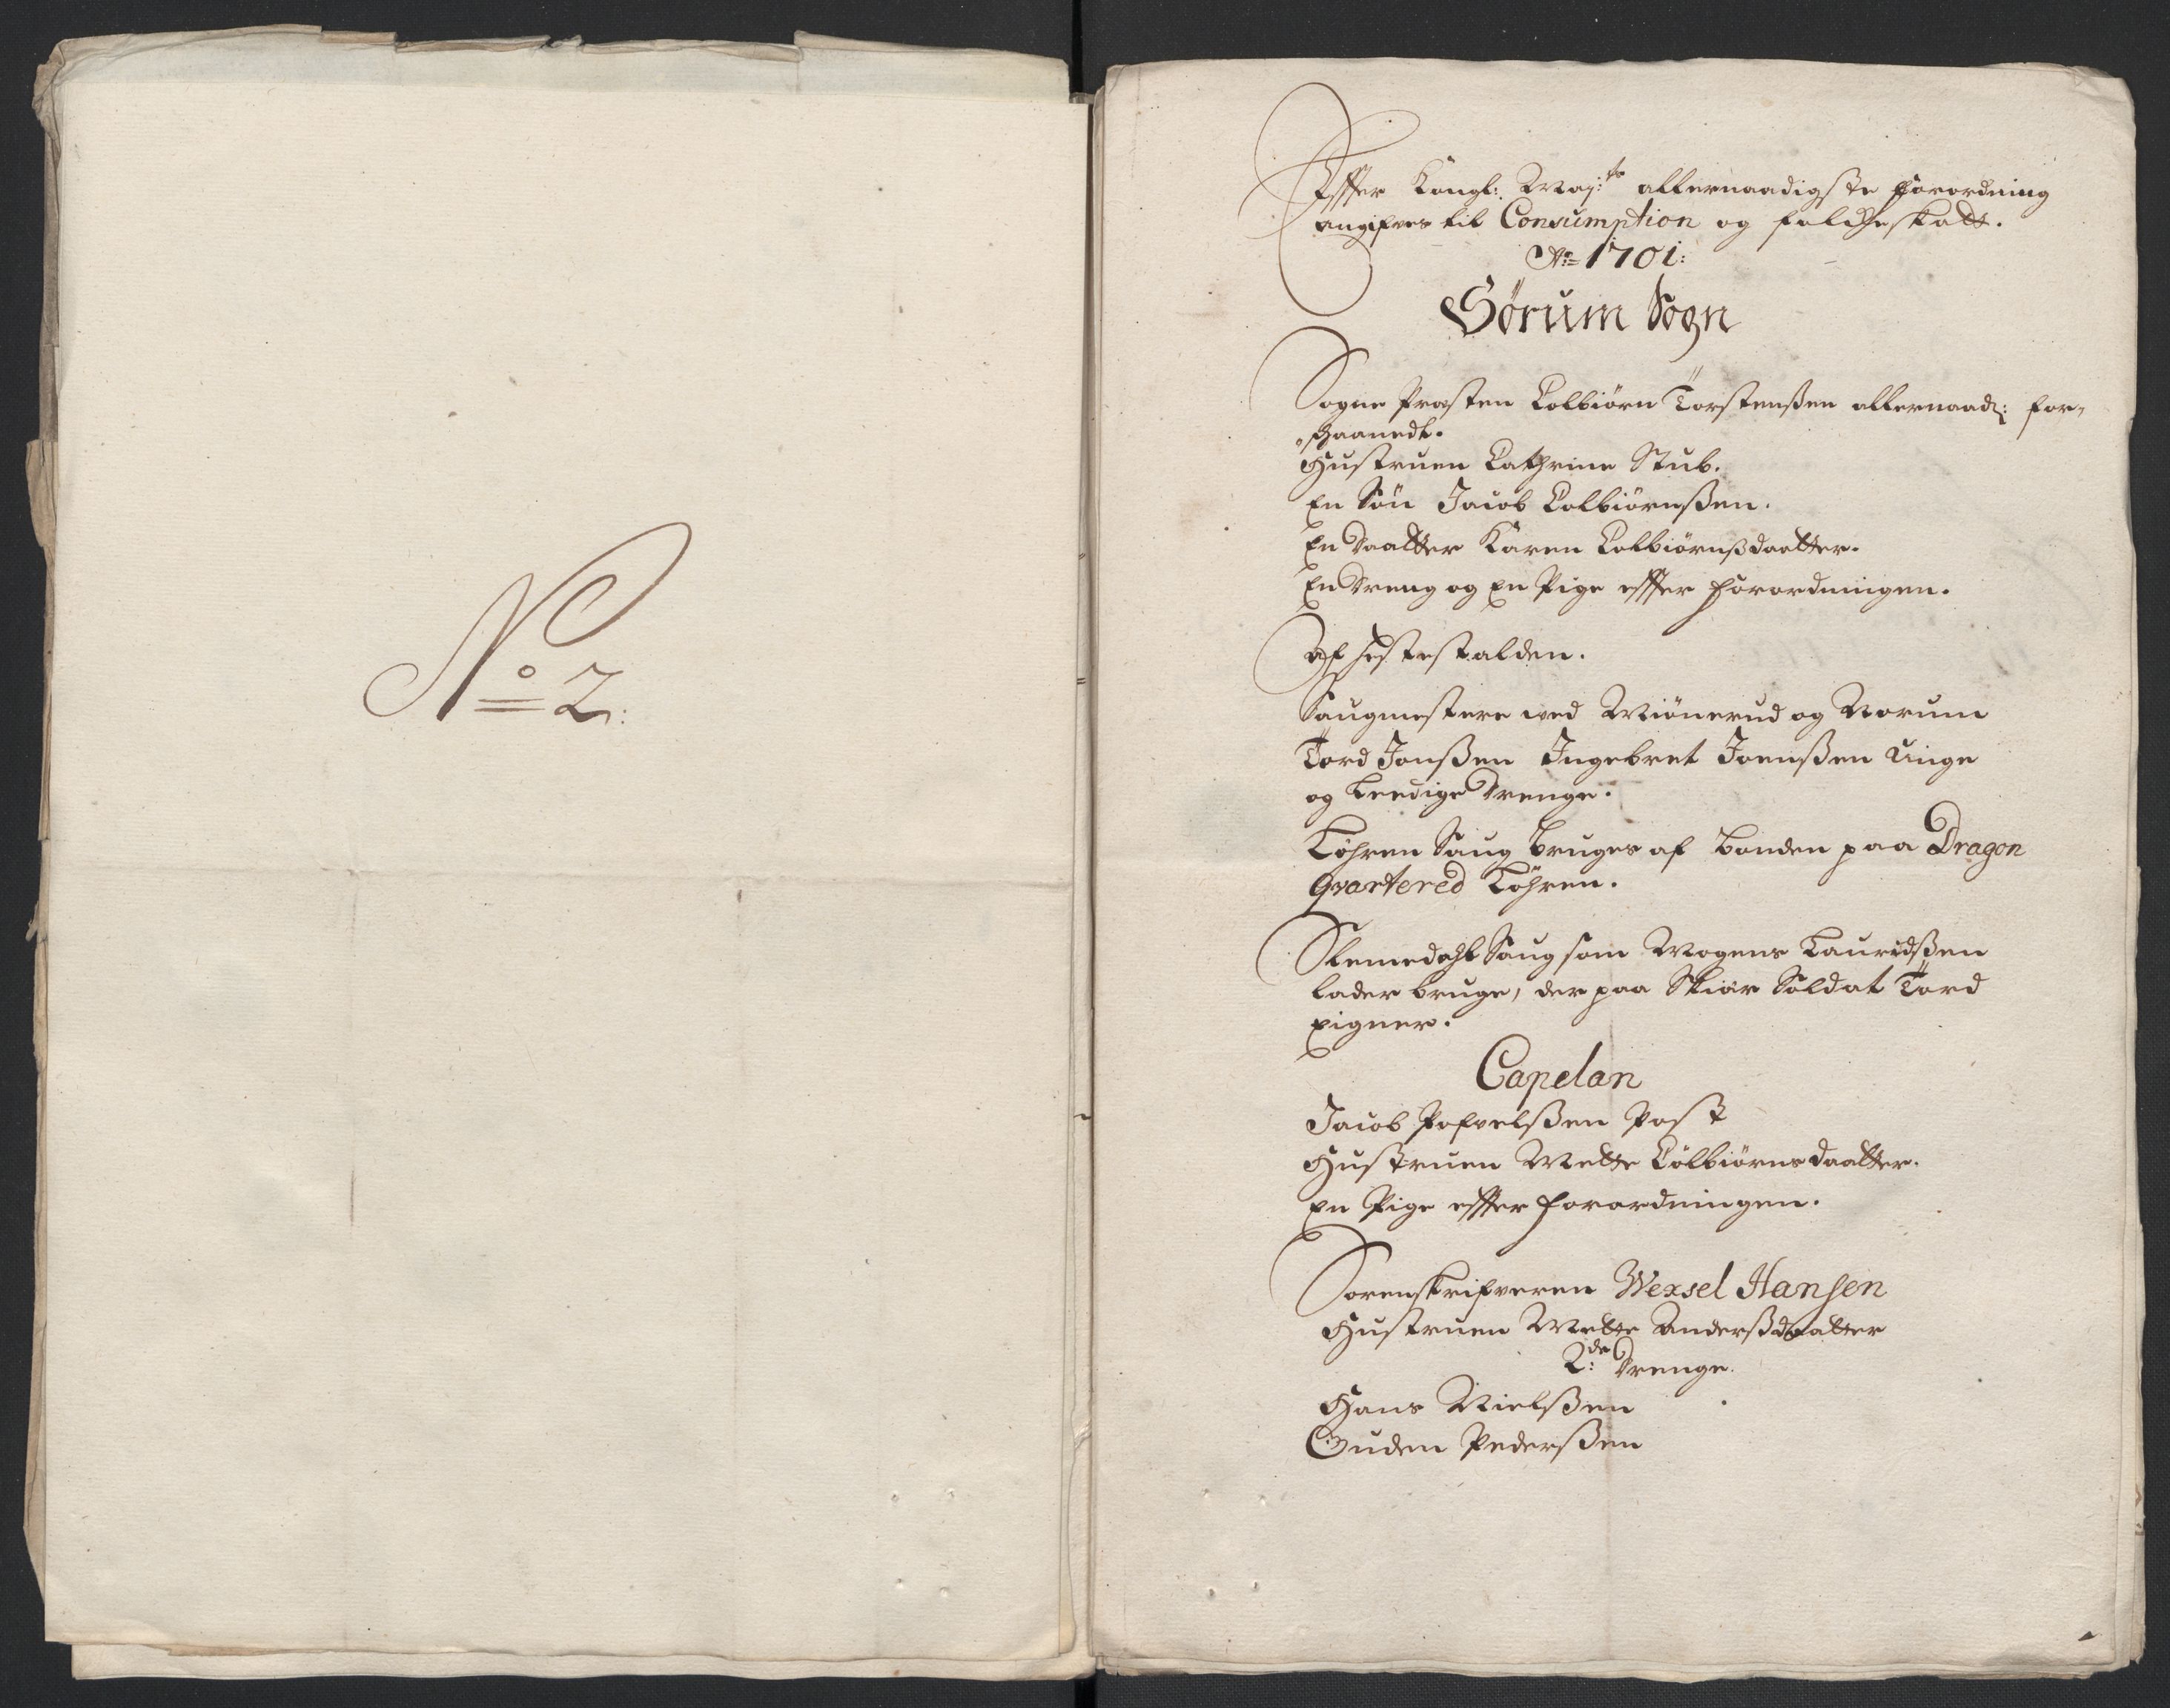 No 2:
Effter Kongl: May:ts allernaadigste forordning
angifves til Consumption og folcheskatt.
Ao 1701:
Sørum Sogn
Sogne Præsten Colbiørn Torstenßen allernaad: for-
schaanedt.
Hustruen Cathrine Stub.
En Søn Jacob Colbiørnßen.
En Daatter Karen Colbiørnßdaatter.
En Dreng og En Pige effter forordningen.
Af Hestestalden.
Saugmestere ved Miønerud og Norum
Tord Jonßen Ingebret Joenßen Unge
og Leedige Drenge.
Løhren Saug bruges af bonden paa Dragon
Qvartered Løhren.
Slemedahl Saug som Mogens Lauridßen
lader bruge, der paa Skiær Soldat Tord
Eigner.
Capelan
Jacob Pofvelßen Post
Hustruen Mette Colbiørnsdaatter.
En Pige effter forordningen.
Sorenskrifveren Wexsel Hansen
Hustruen Mette Anderßdaatter
2:de Drenge.
Hans Nielßen
Guden Pederßen